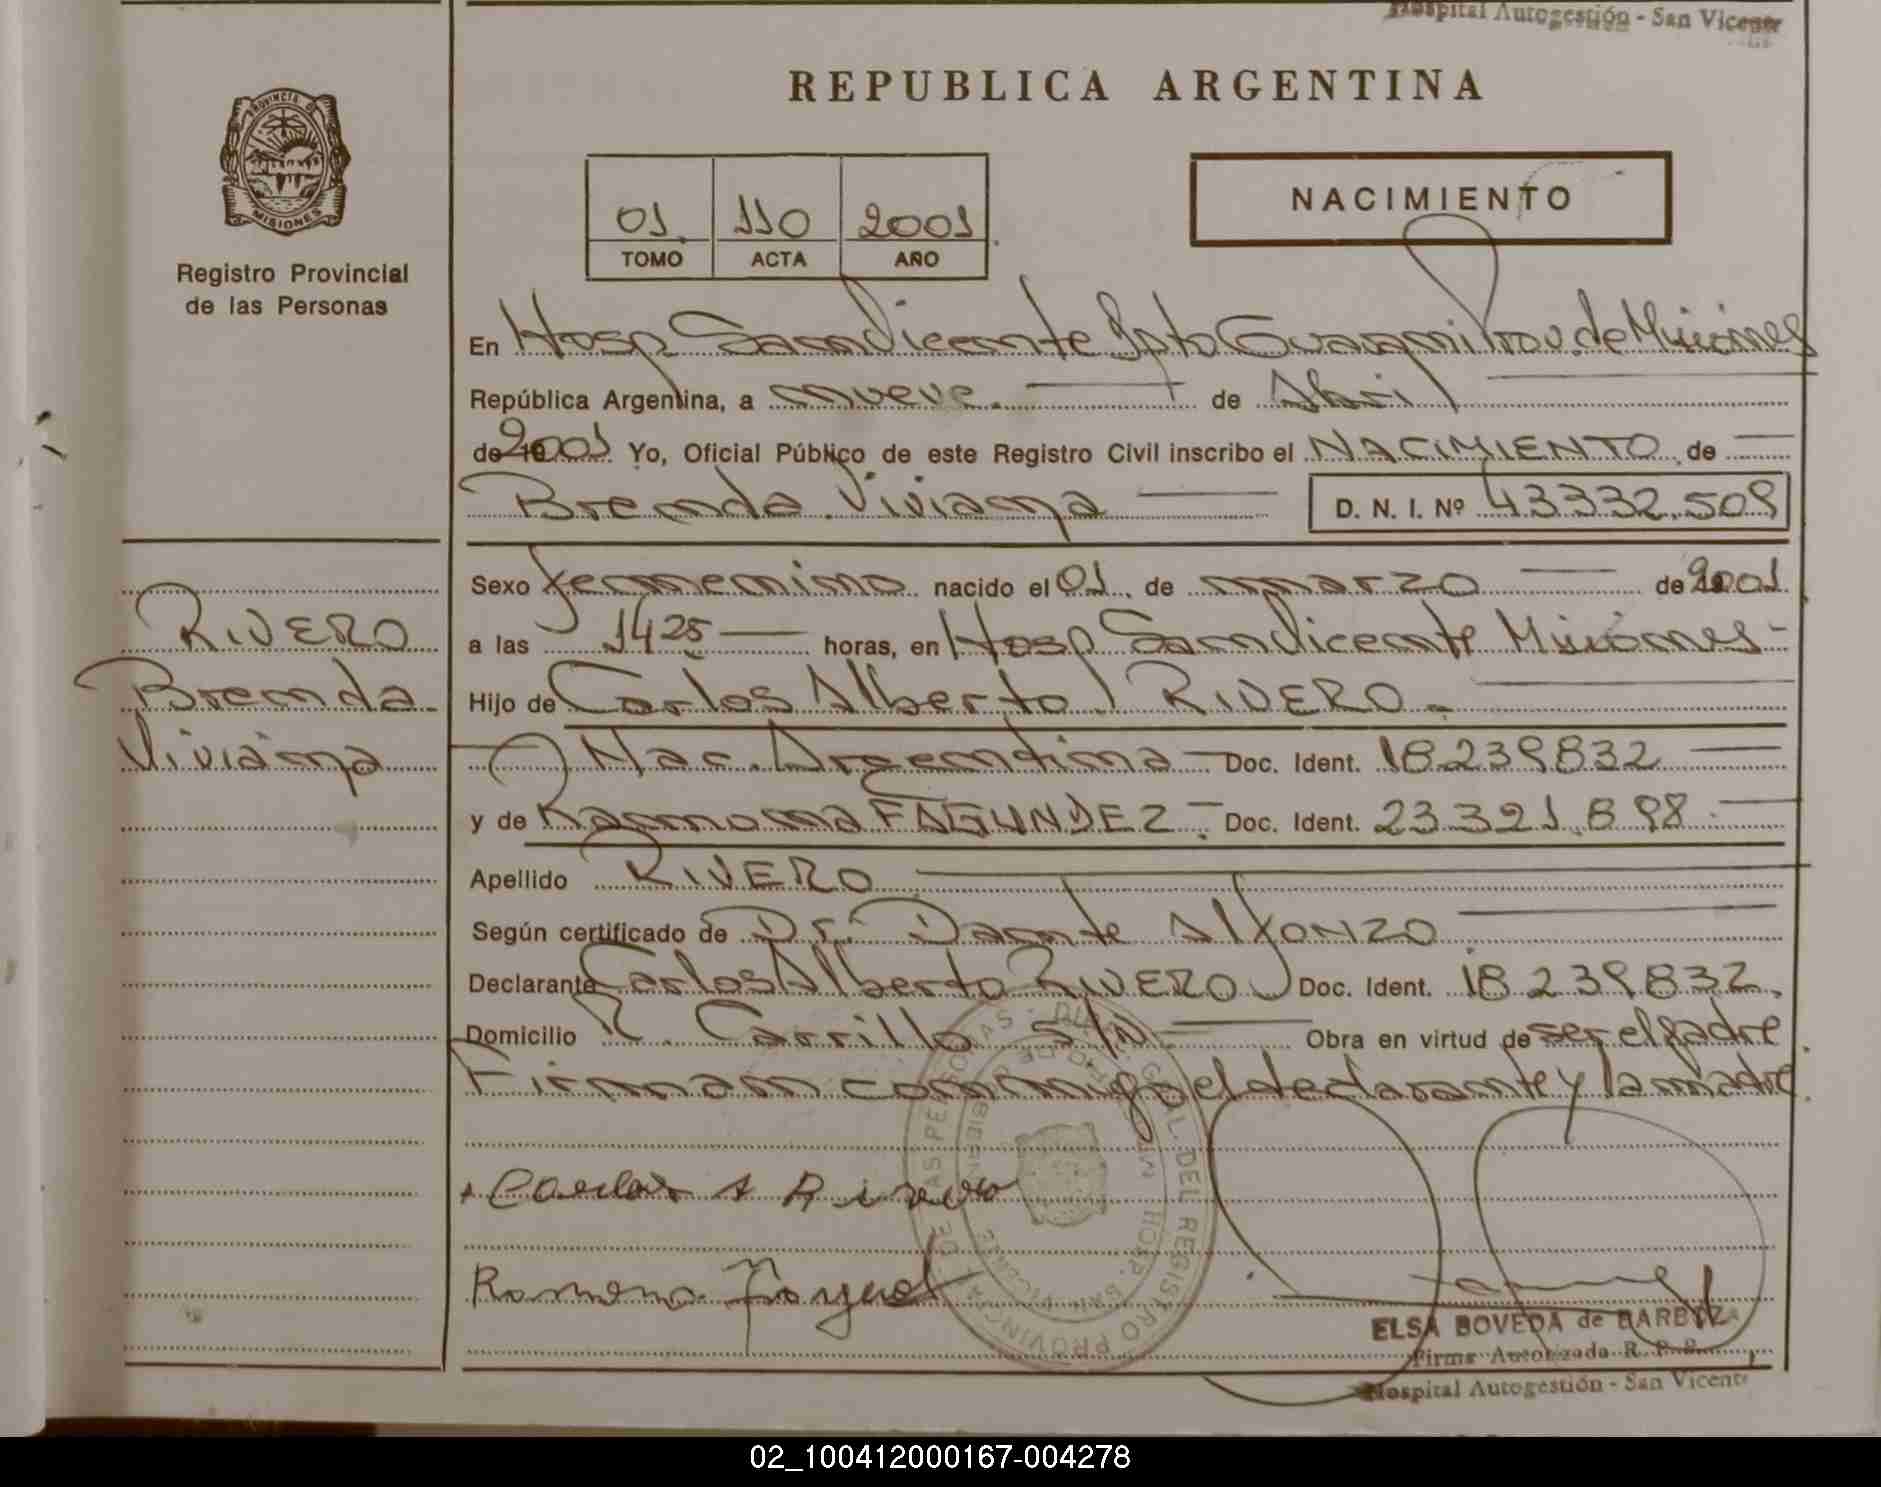 Hospital Autogestión - San Vicente
REPUBLICA ARGENTINA
PROVINCIA DE
MISIONES
Registro Provincial
de las Personas
01 110 2001
TOMO ACTA AÑO
NACIMIENTO
En Hosp. San Vicente Dpto Guaraní Prov. de Misiones
República Argentina, a nueve. de Abril
de 2001 Yo, Oficial Público de este Registro Civil inscribo el NACIMIENTO de
Brenda Viviana D. N. I. Nº 43332.509
RIVERO
Brenda
Viviana
Sexo femenino nacido el 01 de marzo de 2001
a las 14 25 horas, en Hosp San Vicente Misiones-
Hijo de Carlos Alberto RIVERO.
Nac. Argentina Doc. Ident. 18239832
y de Ramona FAGUNDEZ. Doc. Ident. 23321.898
Apellido RIVERO
Según certificado de Dr. Dante Alfonzo
Declarante Carlos Alberto RIVERO Doc. Ident. 18239832.
Domicilio R. Carrillo s/N Obra en virtud de ser el padre
Firman conmigo el declarante y la madre.
Carlos A Rivero
Ramona
ELSA BOVEDA de BARBOZA
Firma Autorizada R. P. P.
Hospital Autogestión - San Vicente
02_100412000167-004278